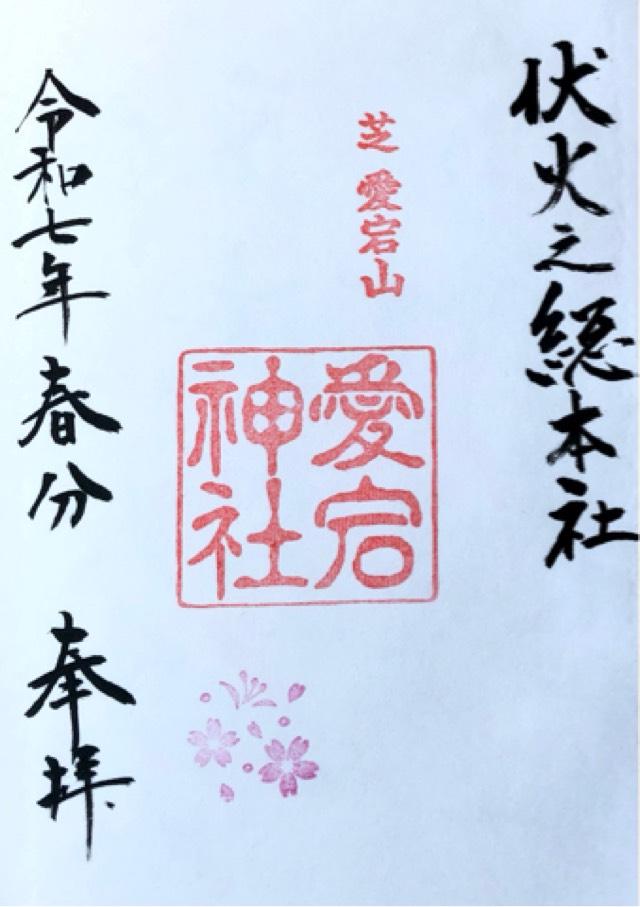 伏火之総本社
芝 愛宕山
愛宕
神社
令和七年 春分 奉拝